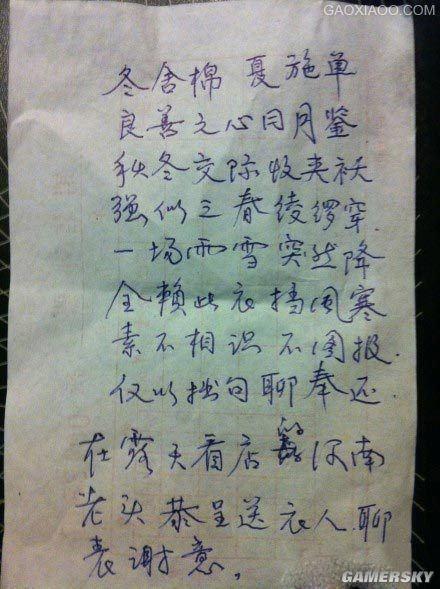 GAOXIAOO.COM
冬舍棉 夏施单
良善之心日月鉴
秋冬交际收夹袄
强似三春绫缪穿.
一场雨雪突然降
全赖此衣挡风寒
素不相识不图报.
仅以拙句聊奉还.
在露天看店的河南
老头恭呈送衣人聊
表谢意。
GAMERSKY